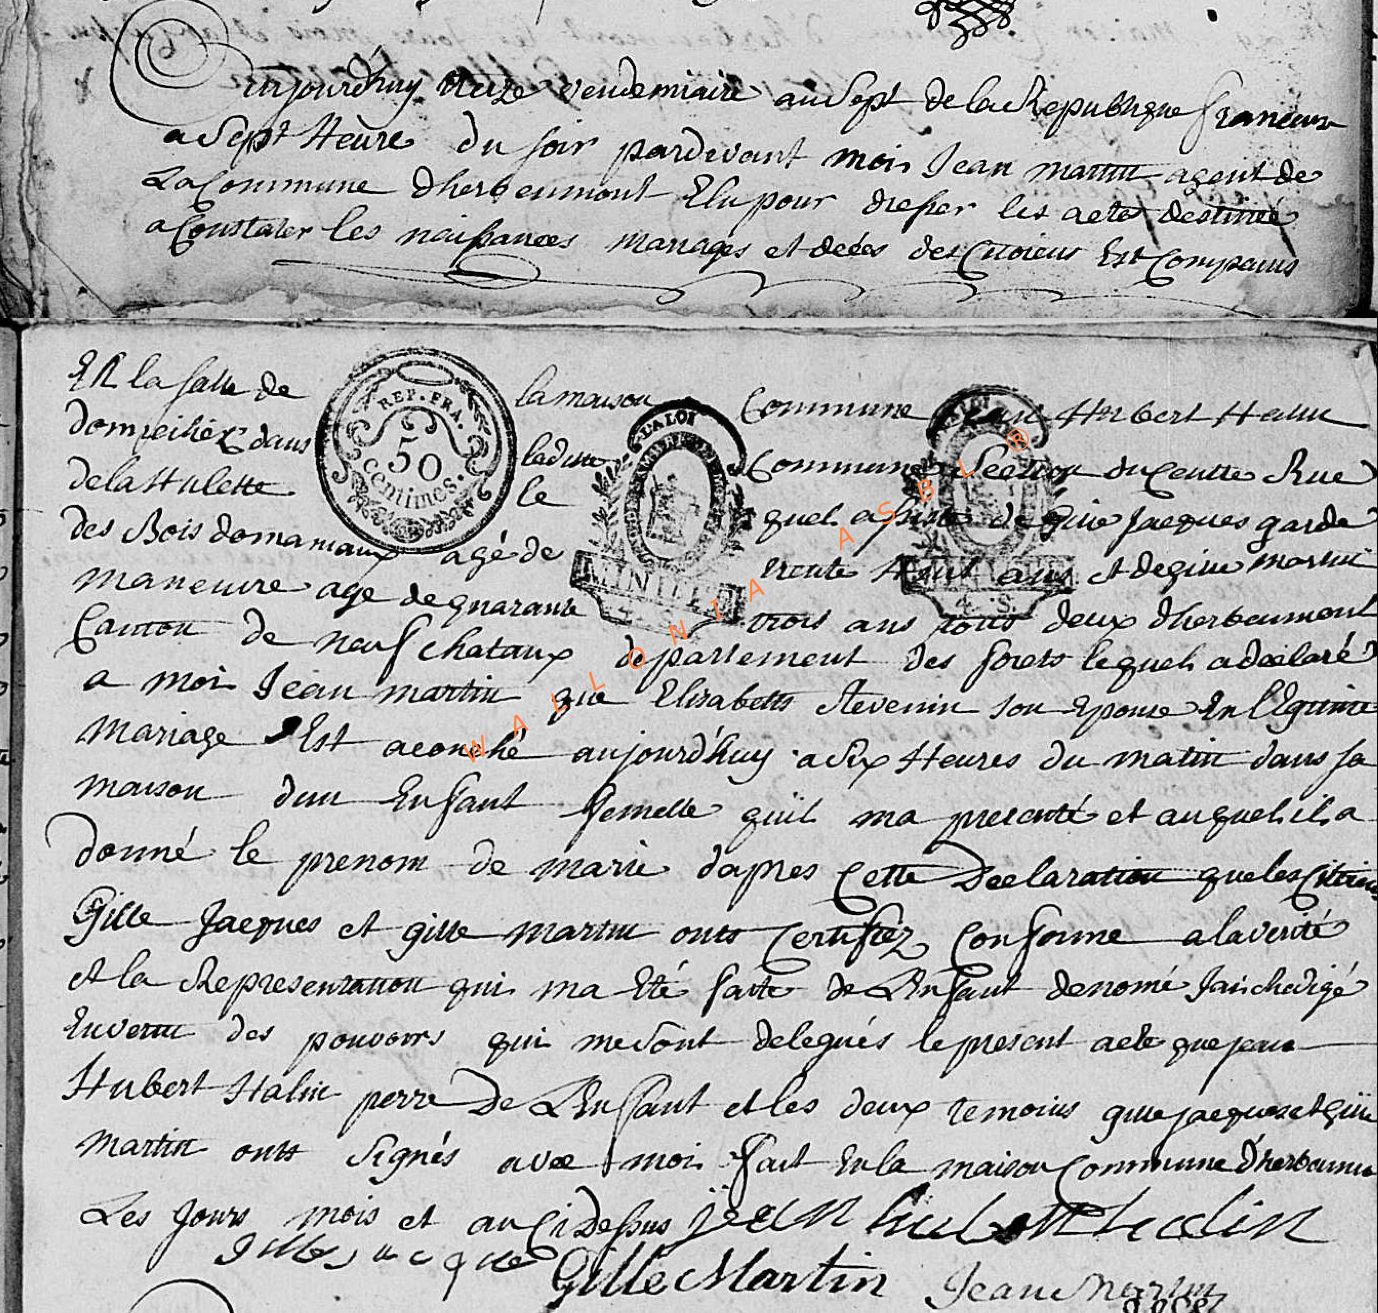 aujourd'huy Onze vendemiaire an Sept de la Republique francaise
a Sept Heure du soir pardevant moi Jean martin agent de
La Commune dherbeumont Elu pour dresser les acte destiné
a Constater les naissances mariages et décés des Citoiens Est Comparus
EN la salle de la maison Commune Jean Hubert Halin
domiciliéz dans laditte Commune Section du Centre Rue
de la Hulette le quel assisté de gille Jacques garde
des Bois domaniaux agé de trente Huit ans et de gille martin
maneuvre age de quarante trois ans tous deux dherbeumont
Canton de neufchataux departement des forets lequel a déclaré
a moi Jean martin que Elisabette Stevenin son Epouse En légitime
mariage Est acouché aujourd'huy a Six Heures du matin dans sa
maison dun Enfant femelle quil ma presenté et auquel il a
donné le prenom de marie d'apres Cette Declaration que les Citoiens
Gille Jacques et gille martin onts Certifiez Conforme a la verité
et la Representation qui ma Eté faite de L'Enfant denomé Jai Redigé
En vertu des pouvoirs qui me sont delegués le present acte que jean
Hubert Halin perre De L'Enfant et les deux temoins gille jacques et gille
martin onts signés avec moi fait En la maison Commune d'herbeumont
Les Jours mois et an Ci Dessus jean hubert halin
Gille Jacque Gille Martin Jean Martin
agent
REP. FRA.
50
centimes.
LA LOI
LA LOI
4. S.
WALLONIA ASBL ®